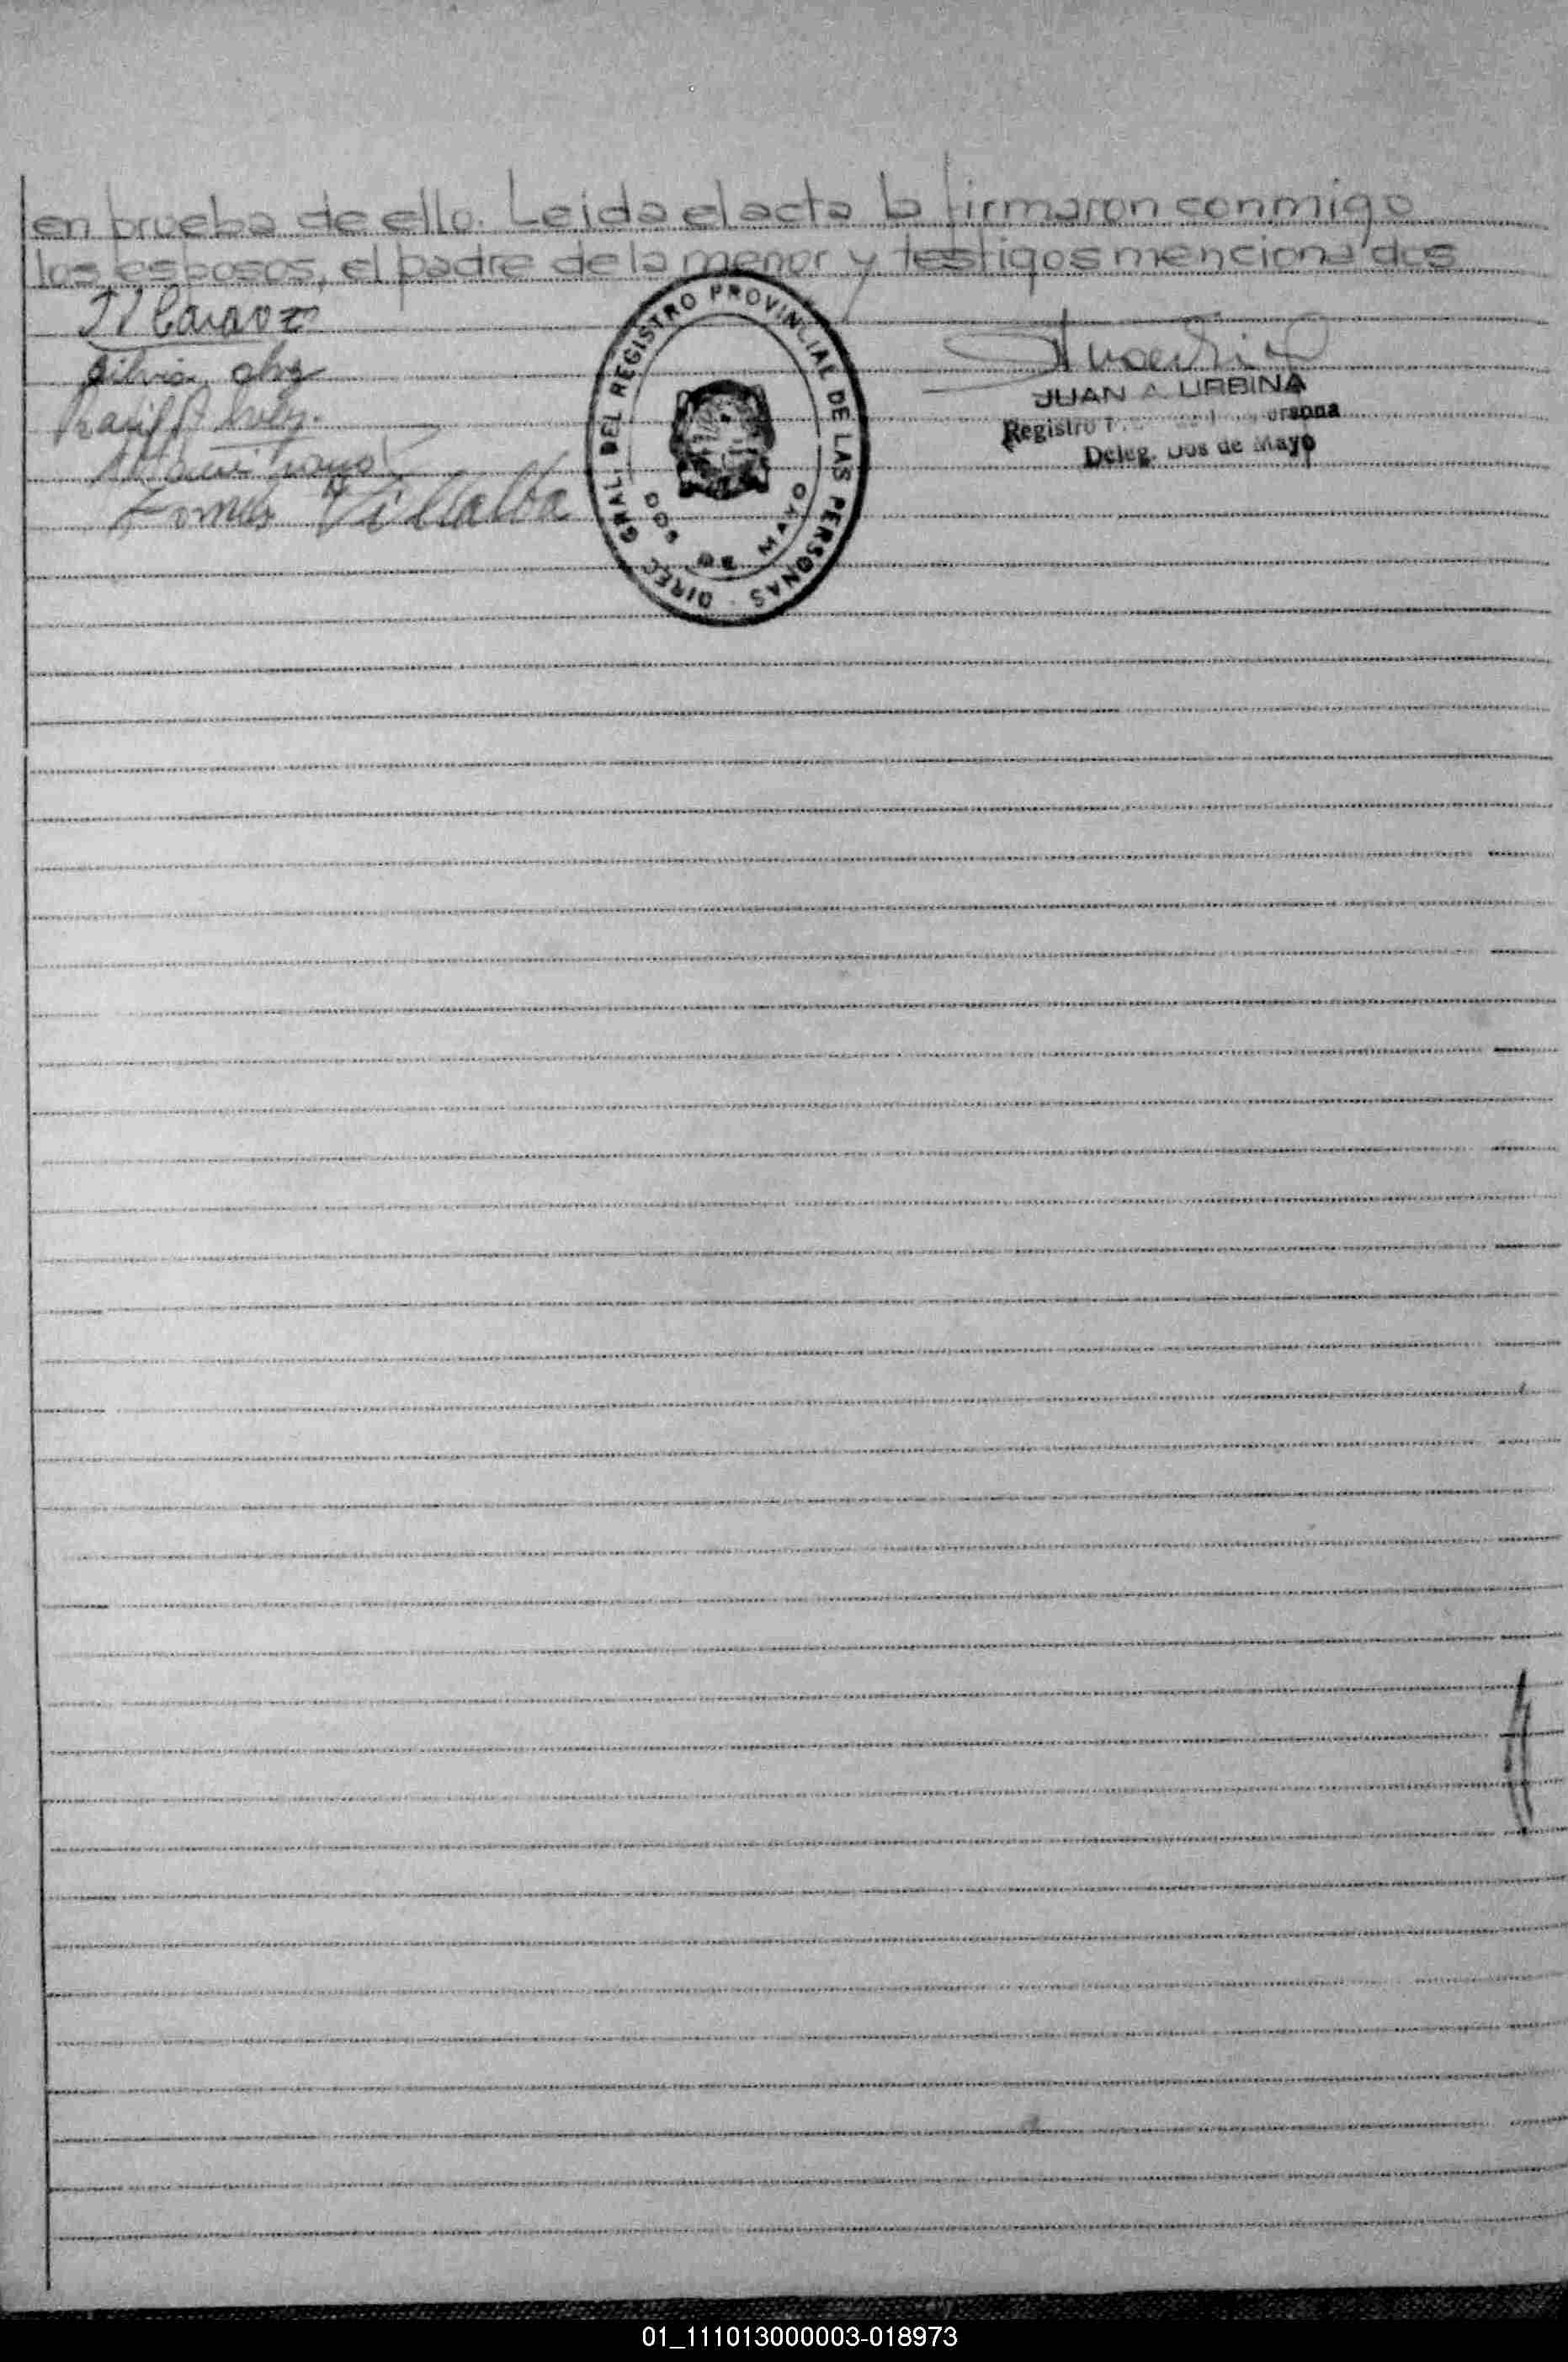 en prueba de ello. Leida el acta la firmaron conmigo
los esposos, el padre de la menor y testigos mencionados
Silvia
Tomas Villalba
DIREC. GRAL. DEL REGISTRO PROVINCIAL DE LAS PERSONAS
DOS DE MAYO
JUAN A. URBINA
Registro
Deleg. Dos de Mayo
01_111013000003-018973